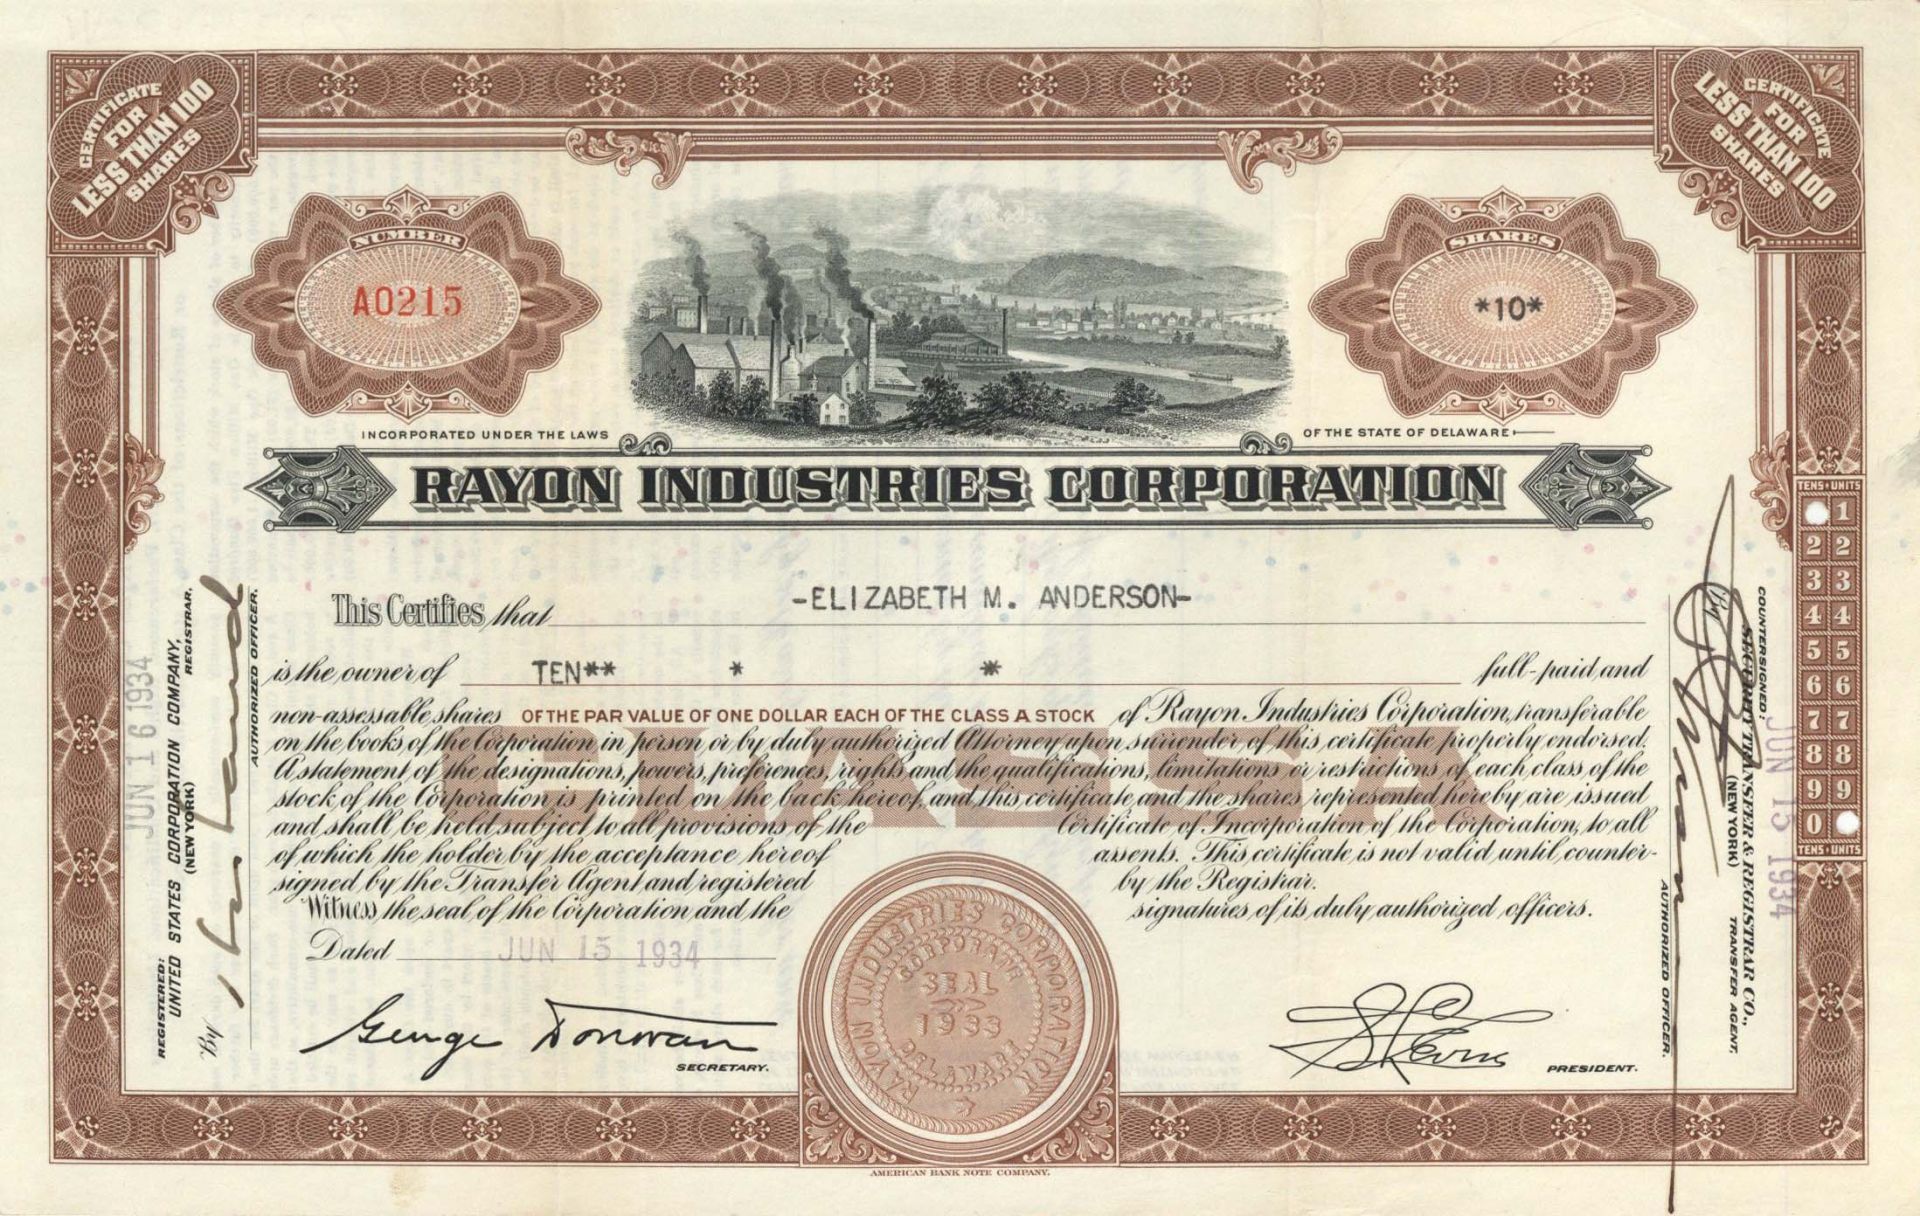 CERTIFICATE
FOR
LESS THAN 100
SHARES
CERTIFICATE
FOR
LESS THAN 100
SHARES
NUMBER
A0215
SHARES
*10*
INCORPORATED UNDER THE LAWS
OF THE STATE OF DELAWARE
RAYON INDUSTRIES CORPORATION
This Certifies that -ELIZABETH M. ANDERSON-
is the owner of TEN** * * full-paid and
non-assessable shares OF THE PAR VALUE OF ONE DOLLAR EACH OF THE CLASS A STOCK of Rayon Industries Corporation, transferable
on the books of the Corporation in person or by duly authorized Attorney upon surrender of this certificate properly endorsed.
A statement of the designations, powers, preferences, rights and the qualifications, limitations or restrictions of each class of the
stock of the Corporation is printed on the back hereof, and this certificate and the shares represented hereby are issued
and shall be held subject to all provisions of the Certificate of Incorporation of the Corporation, to all
of which the holder by the acceptance hereof assents. This certificate is not valid until counter-
signed by the Transfer Agent and registered by the Registrar.
Witness the seal of the Corporation and the signatures of its duly authorized officers.
CLASS A
Dated JUN 15 1934
George Donovan
SECRETARY.
PRESIDENT.
RAYON INDUSTRIES CORPORATION
CORPORATE
SEAL
1933
DELAWARE
AMERICAN BANK NOTE COMPANY.
JUN 16 1934
REGISTERED:
UNITED STATES CORPORATION COMPANY,
(NEW YORK) REGISTRAR.
By
AUTHORIZED OFFICER.
COUNTERSIGNED:
SECURITY TRANSFER & REGISTRAR CO.,
(NEW YORK) TRANSFER AGENT.
By
AUTHORIZED OFFICER.
JUN 15 1934
TENS UNITS
1
2 2
3 3
4 4
5 5
6 6
7 7
8 8
9 9
0
TENS UNITS